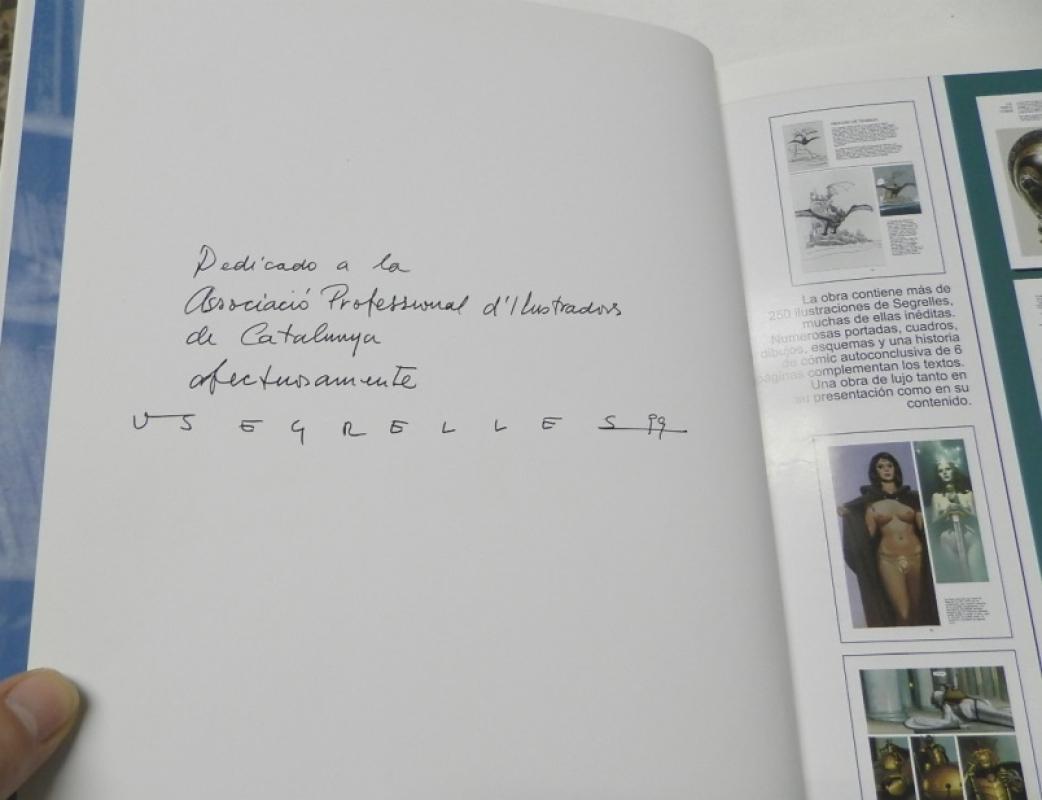 Dedicado a la
Associació Professional d'Ilustradors
de Catalunya
afectuosamente
V S E G R E L L E S 99
La obra contiene más de
250 ilustraciones de Segrelles,
muchas de ellas inéditas.
Numerosas portadas, cuadros,
dibujos, esquemas y una historia
de cómic autoconclusiva de 6
páginas complementan los textos.
Una obra de lujo tanto en
su presentación como en su
contenido.